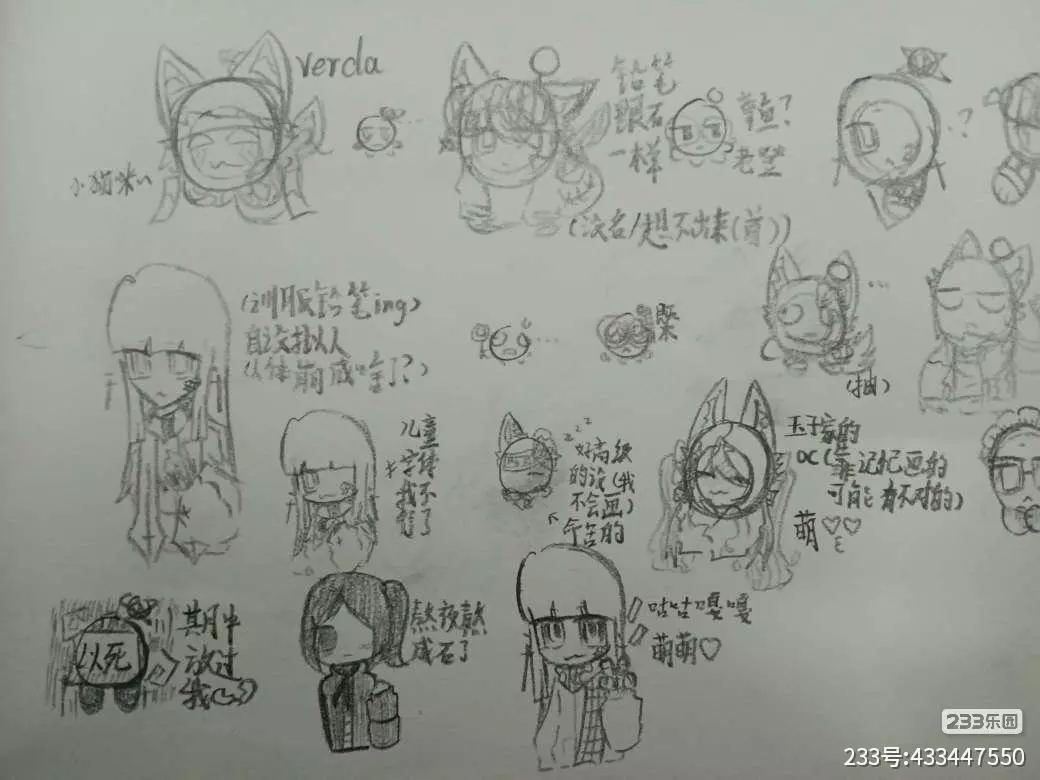 verda
小猫咪
铅笔
跟石
一样
老登
(没名/想不出来(首))
(训服铅笔ing)
(抽)
儿童
字体
我不
行了
zzz
好高级
的说(我
不会画)
命苦的
玉子家的
OC(靠记忆画的
可能有不对的)
萌♡♡
以死
期中
放过
我
熬夜熬
成石了
咕咕嘎嘎
萌萌♡
233乐园
233号:433447550